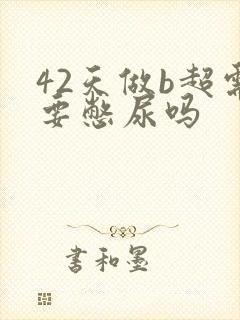 42天做b超需
要憋尿吗
书和墨